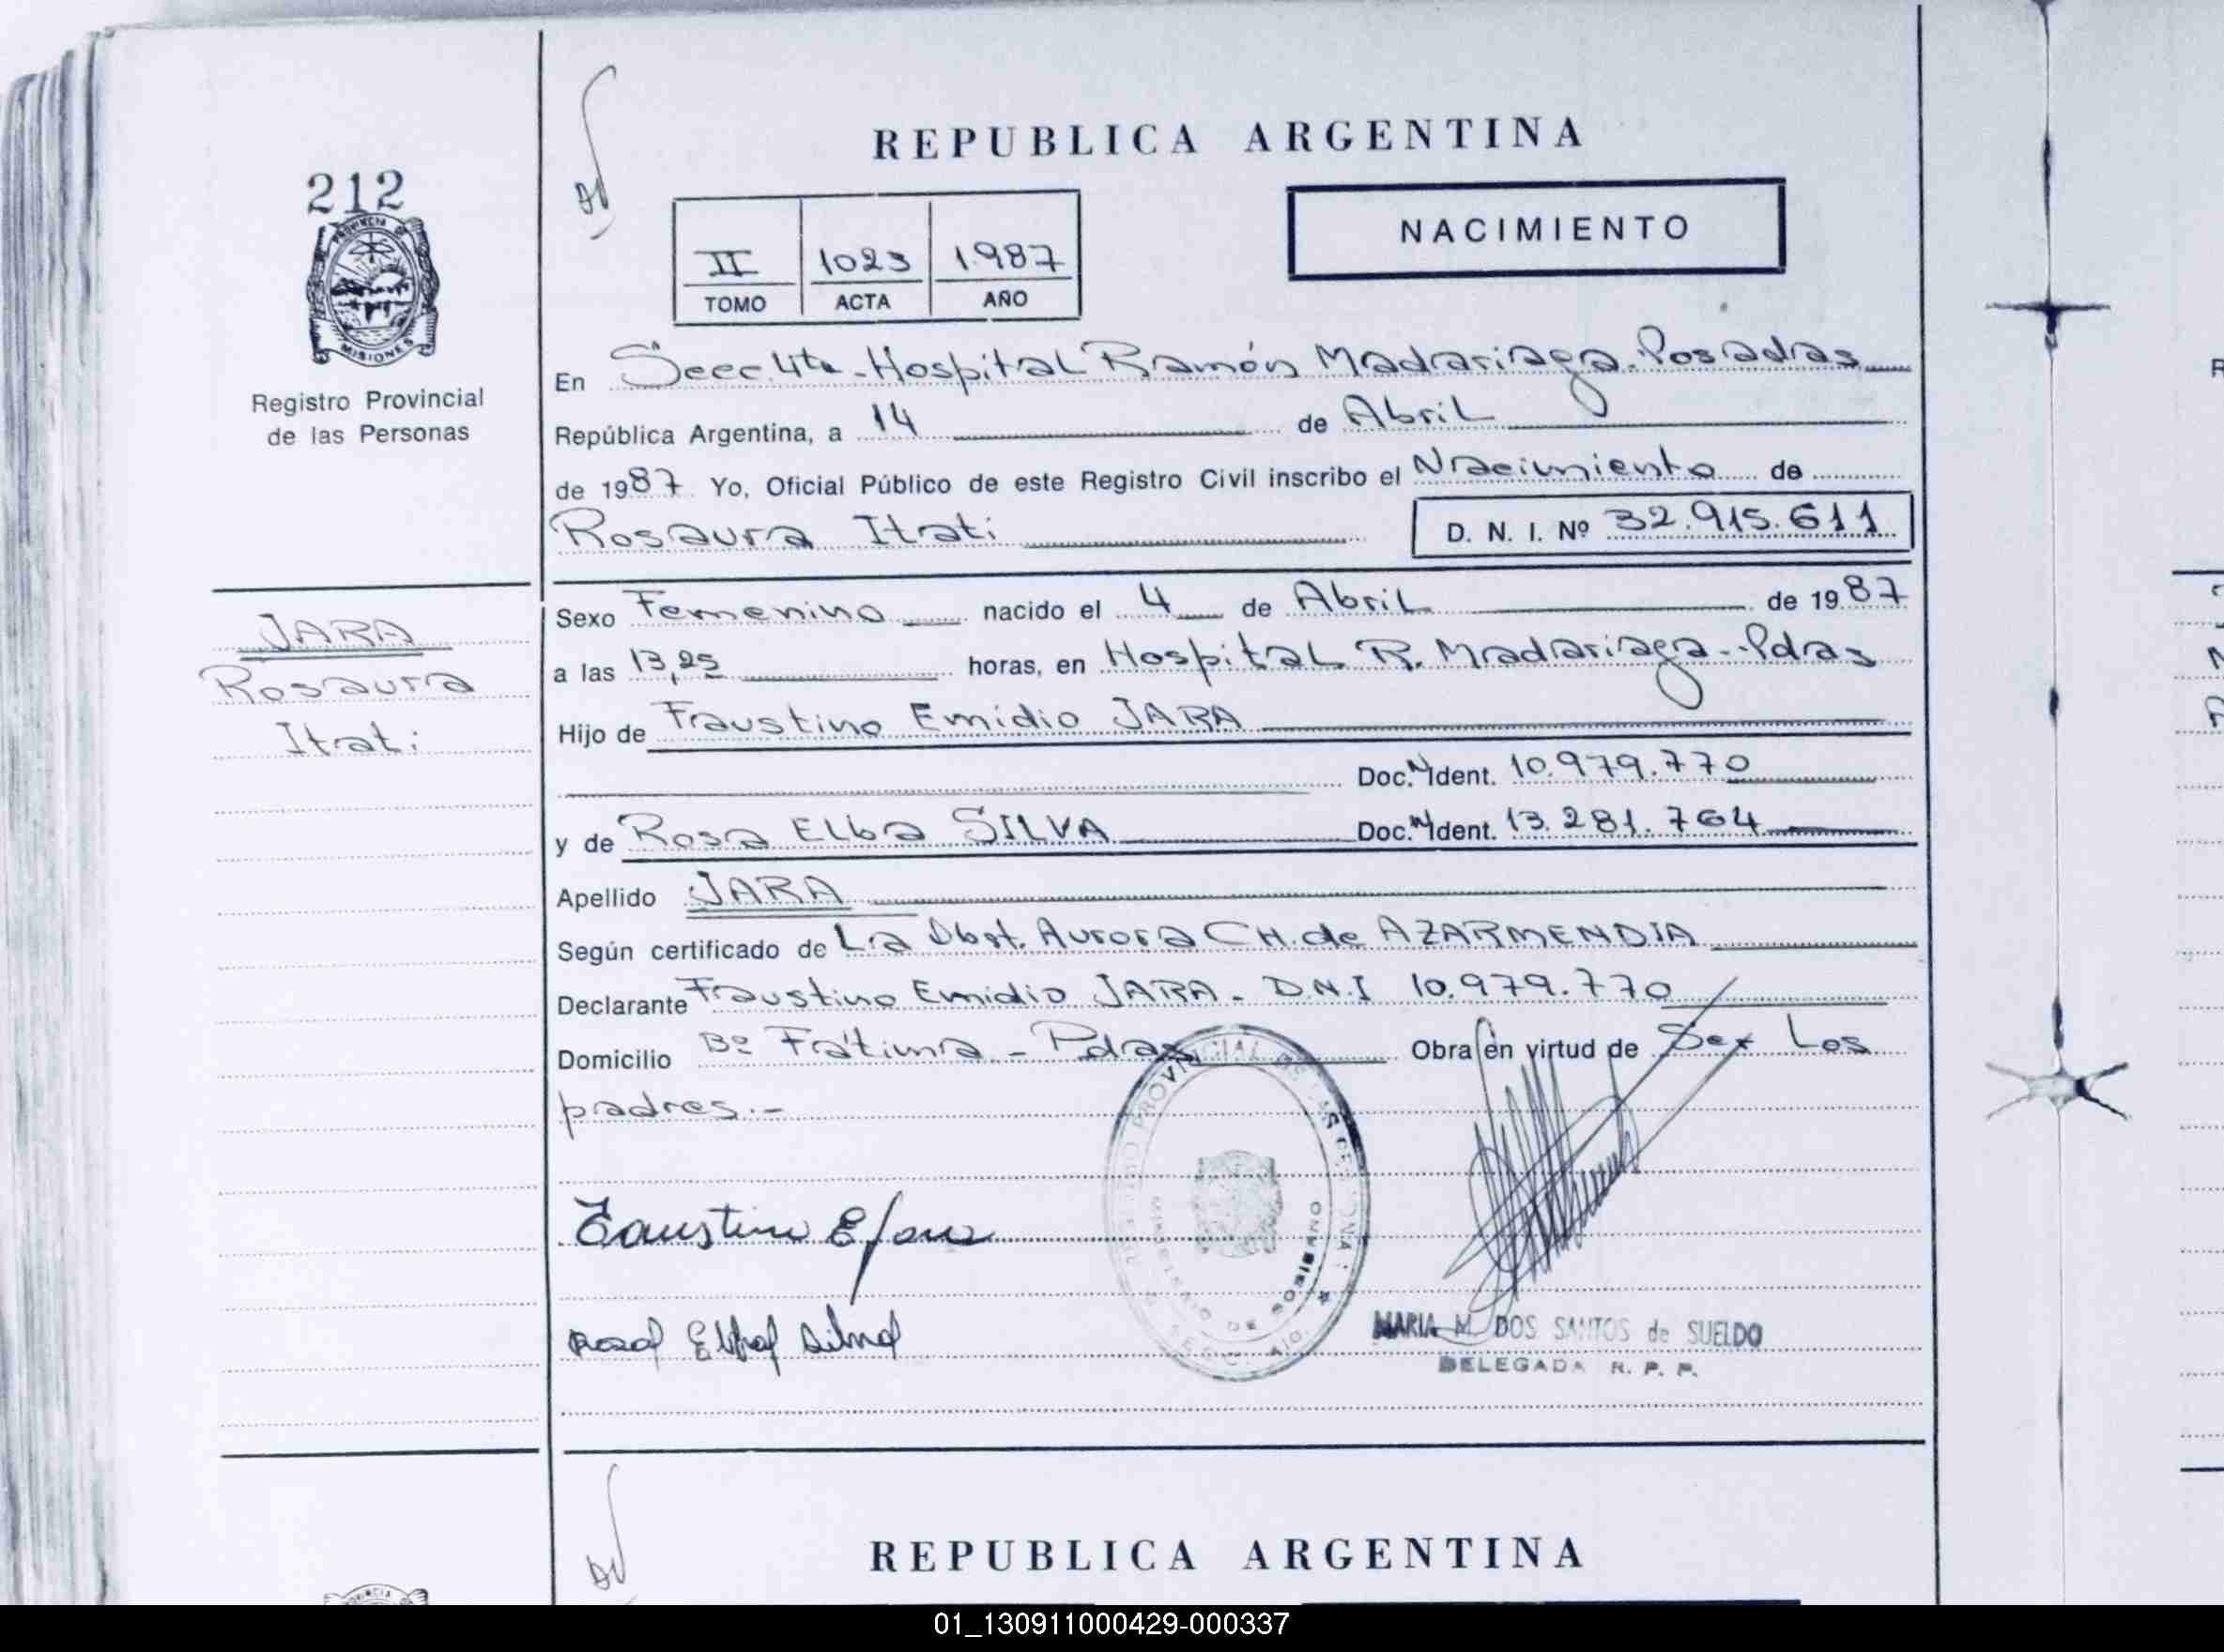 REPUBLICA ARGENTINA
212
NACIMIENTO
II 1023 1.987
TOMO ACTA AÑO
PROVINCIA DE
MISIONES
Registro Provincial
de las Personas
En Secc. 4ta - Hospital Ramón Madariaga. Posadas
República Argentina, a 14 de Abril
de 1987 Yo, Oficial Público de este Registro Civil inscribo el Nacimiento de
Rosaura Itati D. N. I. Nº 32.915.611
JARA
Rosaura
Itati
Sexo Femenino nacido el 4 de Abril de 1987
a las 13,25 horas, en Hospital R. Madariaga - Pdas
Hijo de Faustino Emidio JARA
Doc. N Ident. 10.979.770
y de Rosa Elba SILVA Doc. N Ident. 13.281.764
Apellido JARA
Según certificado de La Obst. Aurora CH. de AZARMENDIA
Declarante Faustino Emidio JARA - D.N.I 10.979.770
Domicilio Bº Fátima - Pdas Obra en virtud de Ser Los
padres.-
Faustino E Jara
Rosa Elba Silva
MARIA M. DOS SANTOS de SUELDO
DELEGADA R. P. P.
REPUBLICA ARGENTINA
01_130911000429-000337